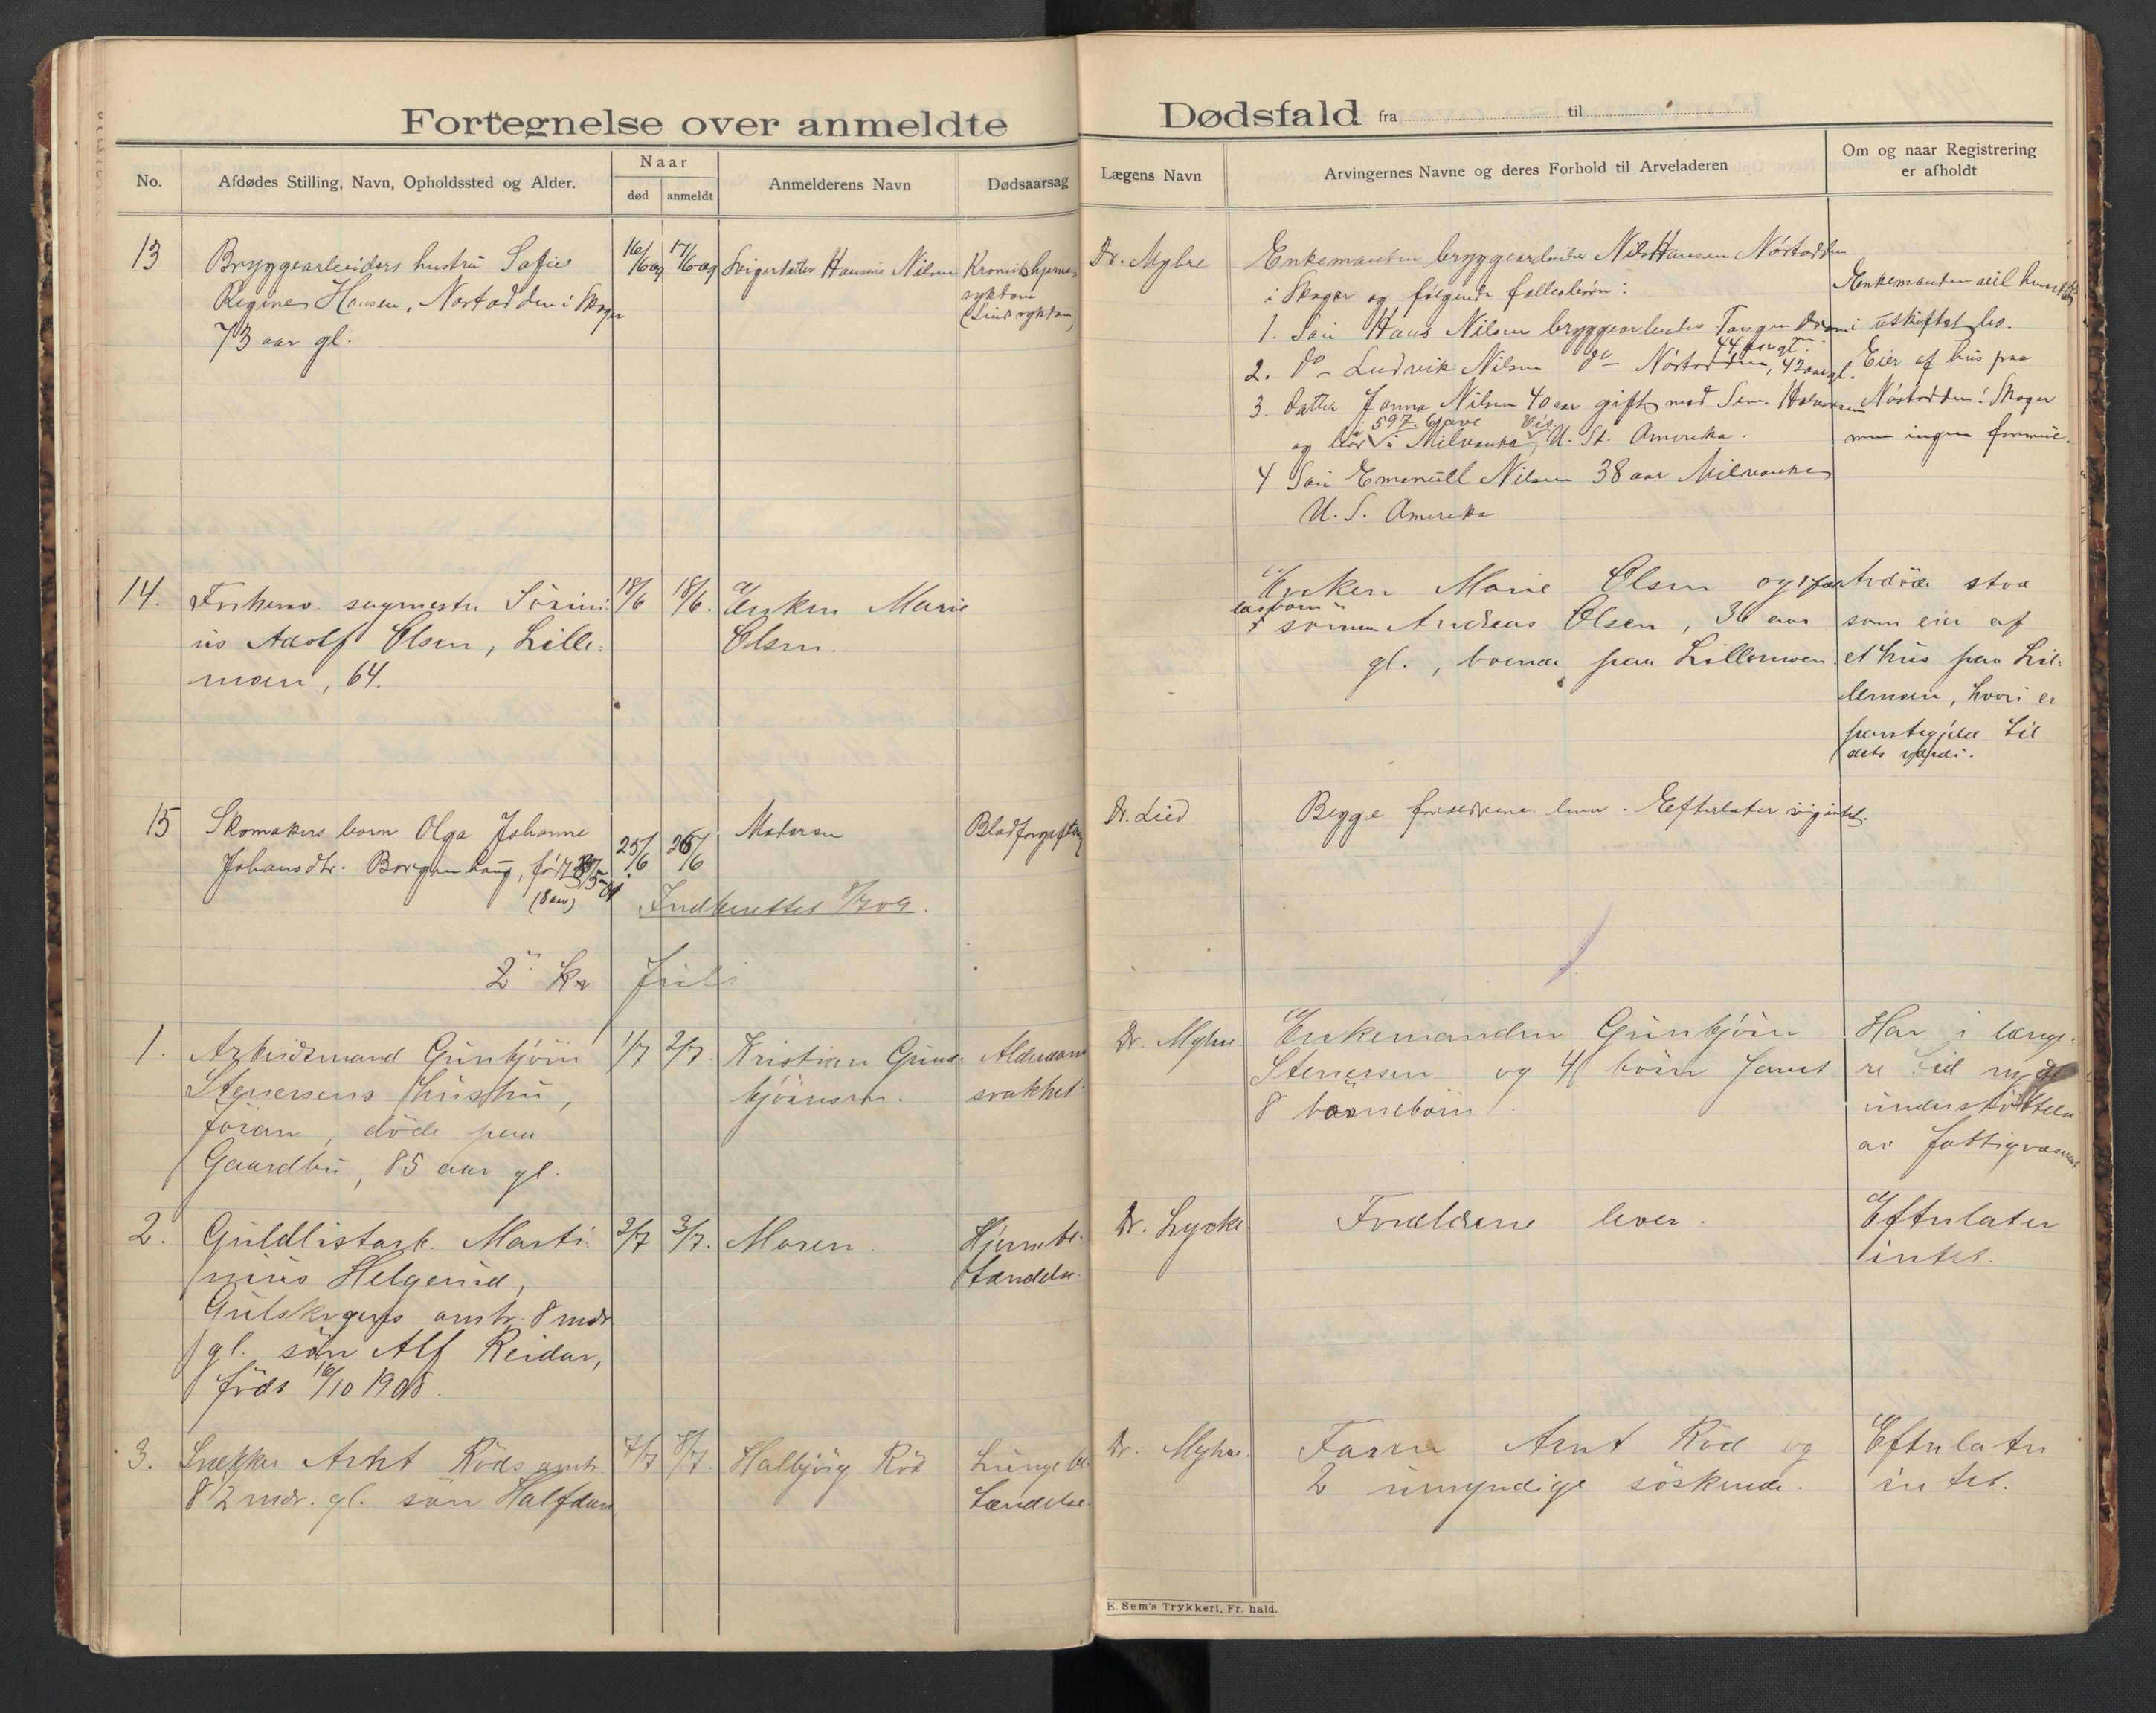 Fortegnelse over anmeldte Dødsfald fra til
No.
Afdødes Stilling, Navn, Opholdssted og Alder.
Naar
død
anmeldt
Anmelderens Navn
Dødsaarsag
Lægens Navn
Arvingernes Navne og deres Forhold til Arveladeren
Om og naar Registrering
er afholdt
13
Bryggearbeiders hustru Safie
Regine Hansen, Nøstodden i Skoger
73 aar gl.
16/6 09
17/6 09
Svigerdatter Hansine Nilsen
Kronisk hjerne-
sykdom
(Sindsykdom)
Dr. Myhre
Enkemanden bryggearbeider Nils Hansen Nøstodden
i Skoger og følgende fællesbørn:
1. Søn Hans Nilsen bryggearbeider Tangen Dramm
44 aar gl.
2. do - Ludvik Nilsen do - Nøstodden, 42 aar gl.
3. Datter Janna Nilsen 40 aar gift med Sem Halvorsen
597. Grove Vis
og bor i Milvauke, U. St. Amerika.
4 Søn Emanuell Nilsen 38 aar Milvauke
U. S. Amerika
Enkemanden vil hensidde
i uskiftet bo.
Eier af hus paa
Nøstodden i Skoger
men ingen formue.
14.
Forhenv. sagmester Sörini-
us Adolf Olsen, Lille-
moen, 64.
18/6
18/6.
Enken Marie
Olsen.
Enken Marie Olsen og
sønnen Andreas Olsen, 36 aar
gl., boende paa Lillemoen.
Avdöde stod
som eier af
et hus paa Lil-
lemoen, hvori er
pantegjeld til
dets værdi.
15
Skomakers barn Olga Johanne
Johansdtr. Borgenhaug, født
(8 aar)
25/6
26/6
Moderen
Blodforgiftning
Dr. Lied
Begge forældrene lever. Efterlater sig intet.
Indberettet 8/7 09.
2 kv Juli
1.
Arbeidsmand Gunbjörn
Stenersens hustru,
Jöran, döde paa
Gaardbu, 85 aar gl.
1/7
2/7.
Kristian Gun-
björnsen.
Alderdoms-
svakhet
Dr. Myhre
Enkemanden Gunbjörn
Stenersen og 4 börn samt
8 barnebörn.
Har i længe-
re tid nydt
understöttelse
av fattigvæsenet
2.
Guldlistarb. Marti-
nius Helgerud,
Gulskogens amtr. 8 mdr
gl. sön Alf Reidar,
födt 16/10 1908.
2/7
3/7.
Moren
Hjernebe-
tændelse.
Dr. Lycke
Forældrene lever.
Efterlater
intet.
3.
Snekker Arnt Röds amtr.
8 1/2 mdr. gl. sön Halfdan
7/7
8/7.
Halbjörg Röd
Lungebe-
tændelse
Dr. Myhre.
Faren Arnt Röd og
2 umyndige söskende.
Efterlater
intet.
E. Sem's Trykkeri, Fr. hald.